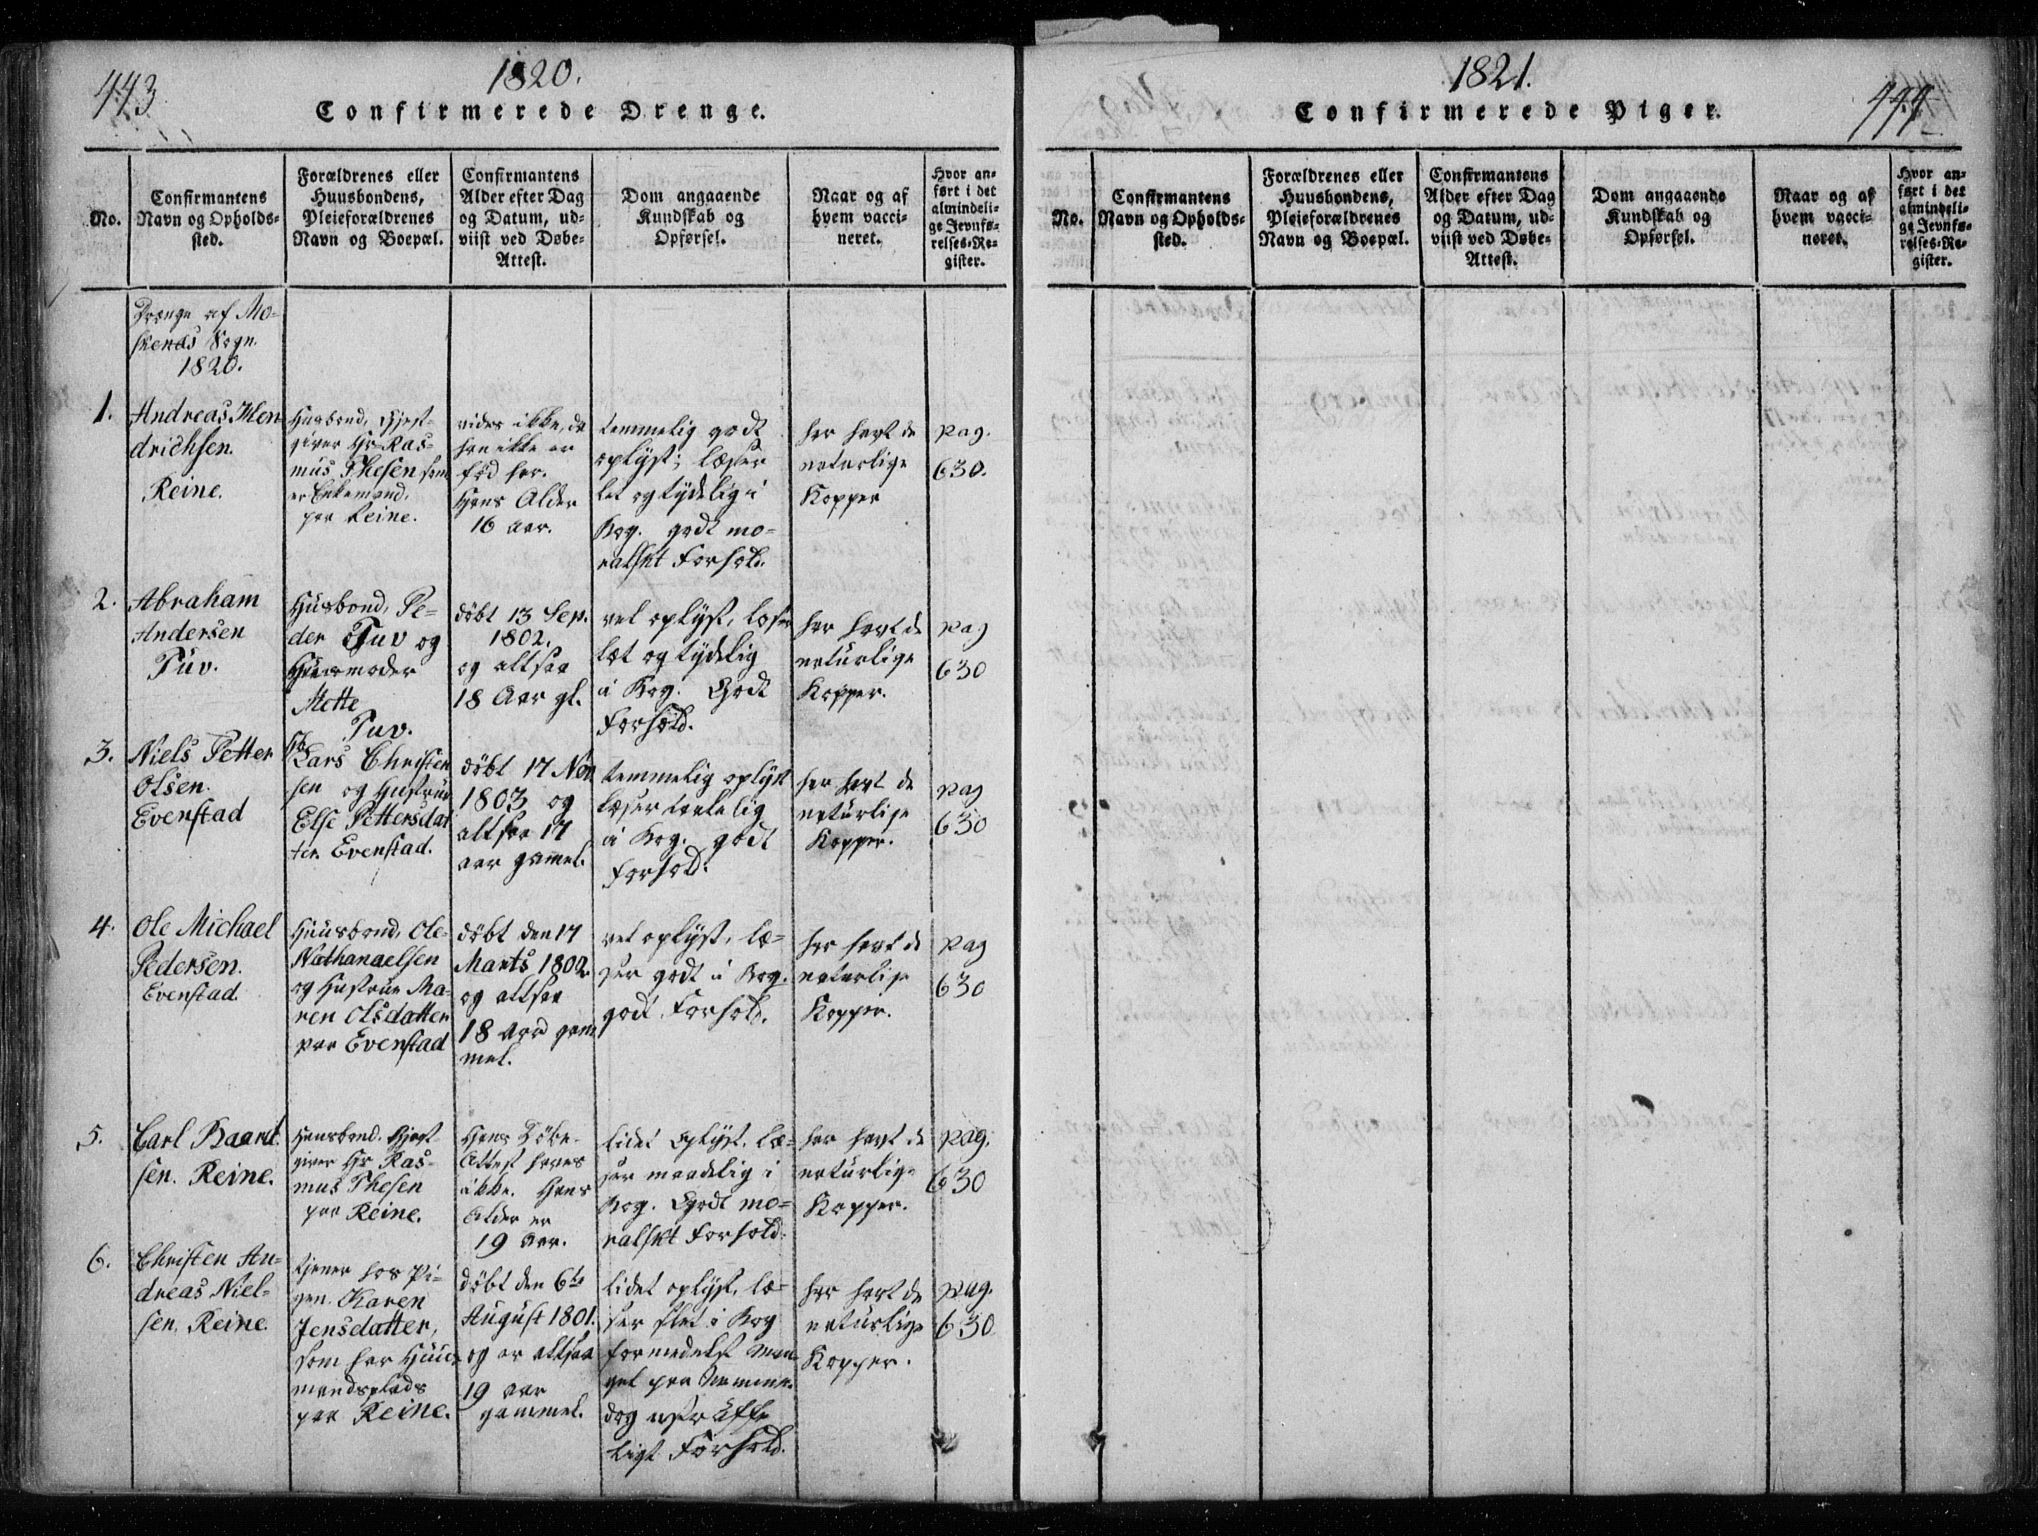 443
1820.
Confirmerede Drenge.
No.
Confirmantens
Navn og Opholds-
sted.
Forældrenes eller
Huusbondens,
Pleieforældrenes
Navn og Boepæl.
Confirmantens
Alder efter Dag
og Datum, ud-
viist ved Døbe-
Attest.
Dom angaaende
Kundskab og
Opførsel.
Naar og af
hvem vacci-
neret.
Hvor an-
ført i det
almindeli-
ge Jevnfø-
relses-Re-
gister.
Drenge af Mo-
skenæs Sogn.
1820.
1.
Andreas Hen
drichsen.
Reine.
Husbond, Gjest-
giver Hr Ras-
mus Thesen som
er Enkemand,
paa Reine.
vides ikke, da
han ikke er
fød her.
Hans Alder
16 aar.
temmelig godt
oplyst; læser
let og tydelig i
Bog. godt mo-
ralskt Forhold.
har havt de
naturlige
Kopper
pag.
630.
2.
Abraham
Andersen
Tuv.
Husbond, Pe-
der Tuv og
Husmoder
Mette
Tuv.
døbt 13 Sep.
1802.
og altsaa
18 Aar gl.
vel oplyst, læser
læt og tydelig
i Bog. Godt
Forhold.
har havt de
naturlige
Kopper.
pag
630
3.
Niels Petter
Olsen.
Evenstad
Lars Christen
sen og Hustrue
Else Pettersdat
ter Evenstad.
døbt 17 Nov
1803 og
altsaa 17
aar gammel.
temmelig oplyst
læser taalelig
i Bog. godt
Forhold.
har havt de
naturlige
Kopper.
pag
630
4.
Ole Michael
Pedersen.
Evenstad.
Huusbond, Ole
Nathanaelsen
og Hustrue Ma-
ren Olsdatter
paa Evenstad
døbt den 17
Marts 1802
og altsaa
18 aar gam
mel.
vel oplyst, læ-
ser godt i Bog.
godt Forhold.
har havt de
naturlige
Kopper.
pag
630
5.
Carl Baard
sen. Reine.
Huusbond, Gjest
giver Hr Ras-
mus Thesen
paa Reine.
Hans Døbe-
Attest haves
ikke. Hans
Alder er
19 aar.
lidet oplyst, læ-
ser maadelig i
Bog. Godt mo-
ralskt Forhold.
har havt de
naturlige
Kopper.
pag.
630
6.
Christen An-
dreas Niel-
sen. Reine.
tjener hos Pi-
gen Karen
Jensdatter,
som har Huus
mandsplads
paa Reine.
døbt den 6te
August 1801.
og er altsaa
19 aar
gammel.
lidet oplyst, læ-
ser slet i Bog
formedelst Man
gel paa Nemme.
dog ustraffe
ligt Forhold.
har havt de
naturlige
Kopper.
pag.
630
1821.
Confirmerede Piger.
444
No.
Confirmantens
Navn og Opholds-
sted.
Forældrenes eller
Huusbondens,
Pleieforældrenes
Navn og Boepæl.
Confirmantens
Alder efter Dag
og Datum, ud-
viist ved Døbe-
Attest.
Dom angaaende
Kundskab og
Opførsel.
Naar og af
hvem vacci-
neret.
Hvor an-
ført i det
almindeli-
ge Jevnfø-
relses-Re-
gister.